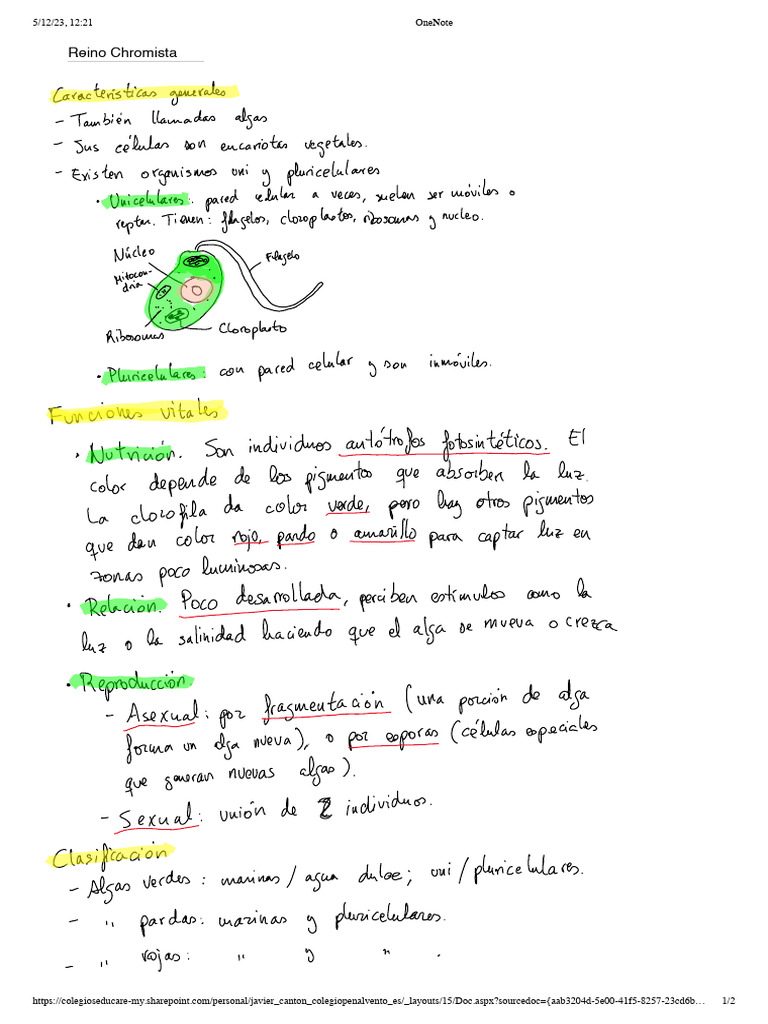 5/12/23, 12:21 OneNote
Reino Chromista
Características generales
- También llamadas algas
- Sus células son eucariotas vegetales.
- Existen organismos uni y pluricelulares
· Unicelulares: pared celular a veces, suelen ser móviles o
reptar. Tienen: flagelos, cloroplastos, ribosomas y nucleo.
Núcleo
Flagelo
Mitocon-
dria
Ribosomas
Cloroplasto
· Pluricelulares: con pared celular y son inmóviles.
Funciones vitales
· Nutrición. Son individuos autótrofos fotosintéticos. El
color depende de los pigmentos que absorben la luz.
La clorofila da color verde, pero hay otros pigmentos
que dan color rojo, pardo o amarillo para captar luz en
zonas poco luminosas.
· Relación. Poco desarrollada, perciben estímulos como la
luz o la salinidad haciendo que el alga se mueva o crezca
· Reproducción
- Asexual: por fragmentación (una porción de alga
forma un alga nueva), o por esporas (células especiales
que generan nuevas algas).
- Sexual: unión de 2 individuos.
Clasificación
- Algas verdes: marinas / agua dulce; uni / pluricelulares.
- " pardas: marinas y pluricelulares.
- " rojas: " y " .
https://colegioseducare-my.sharepoint.com/personal/javier_canton_colegiopenalvento_es/_layouts/15/Doc.aspx?sourcedoc={aab3204d-5e00-41f5-8257-23cd6b… 1/2